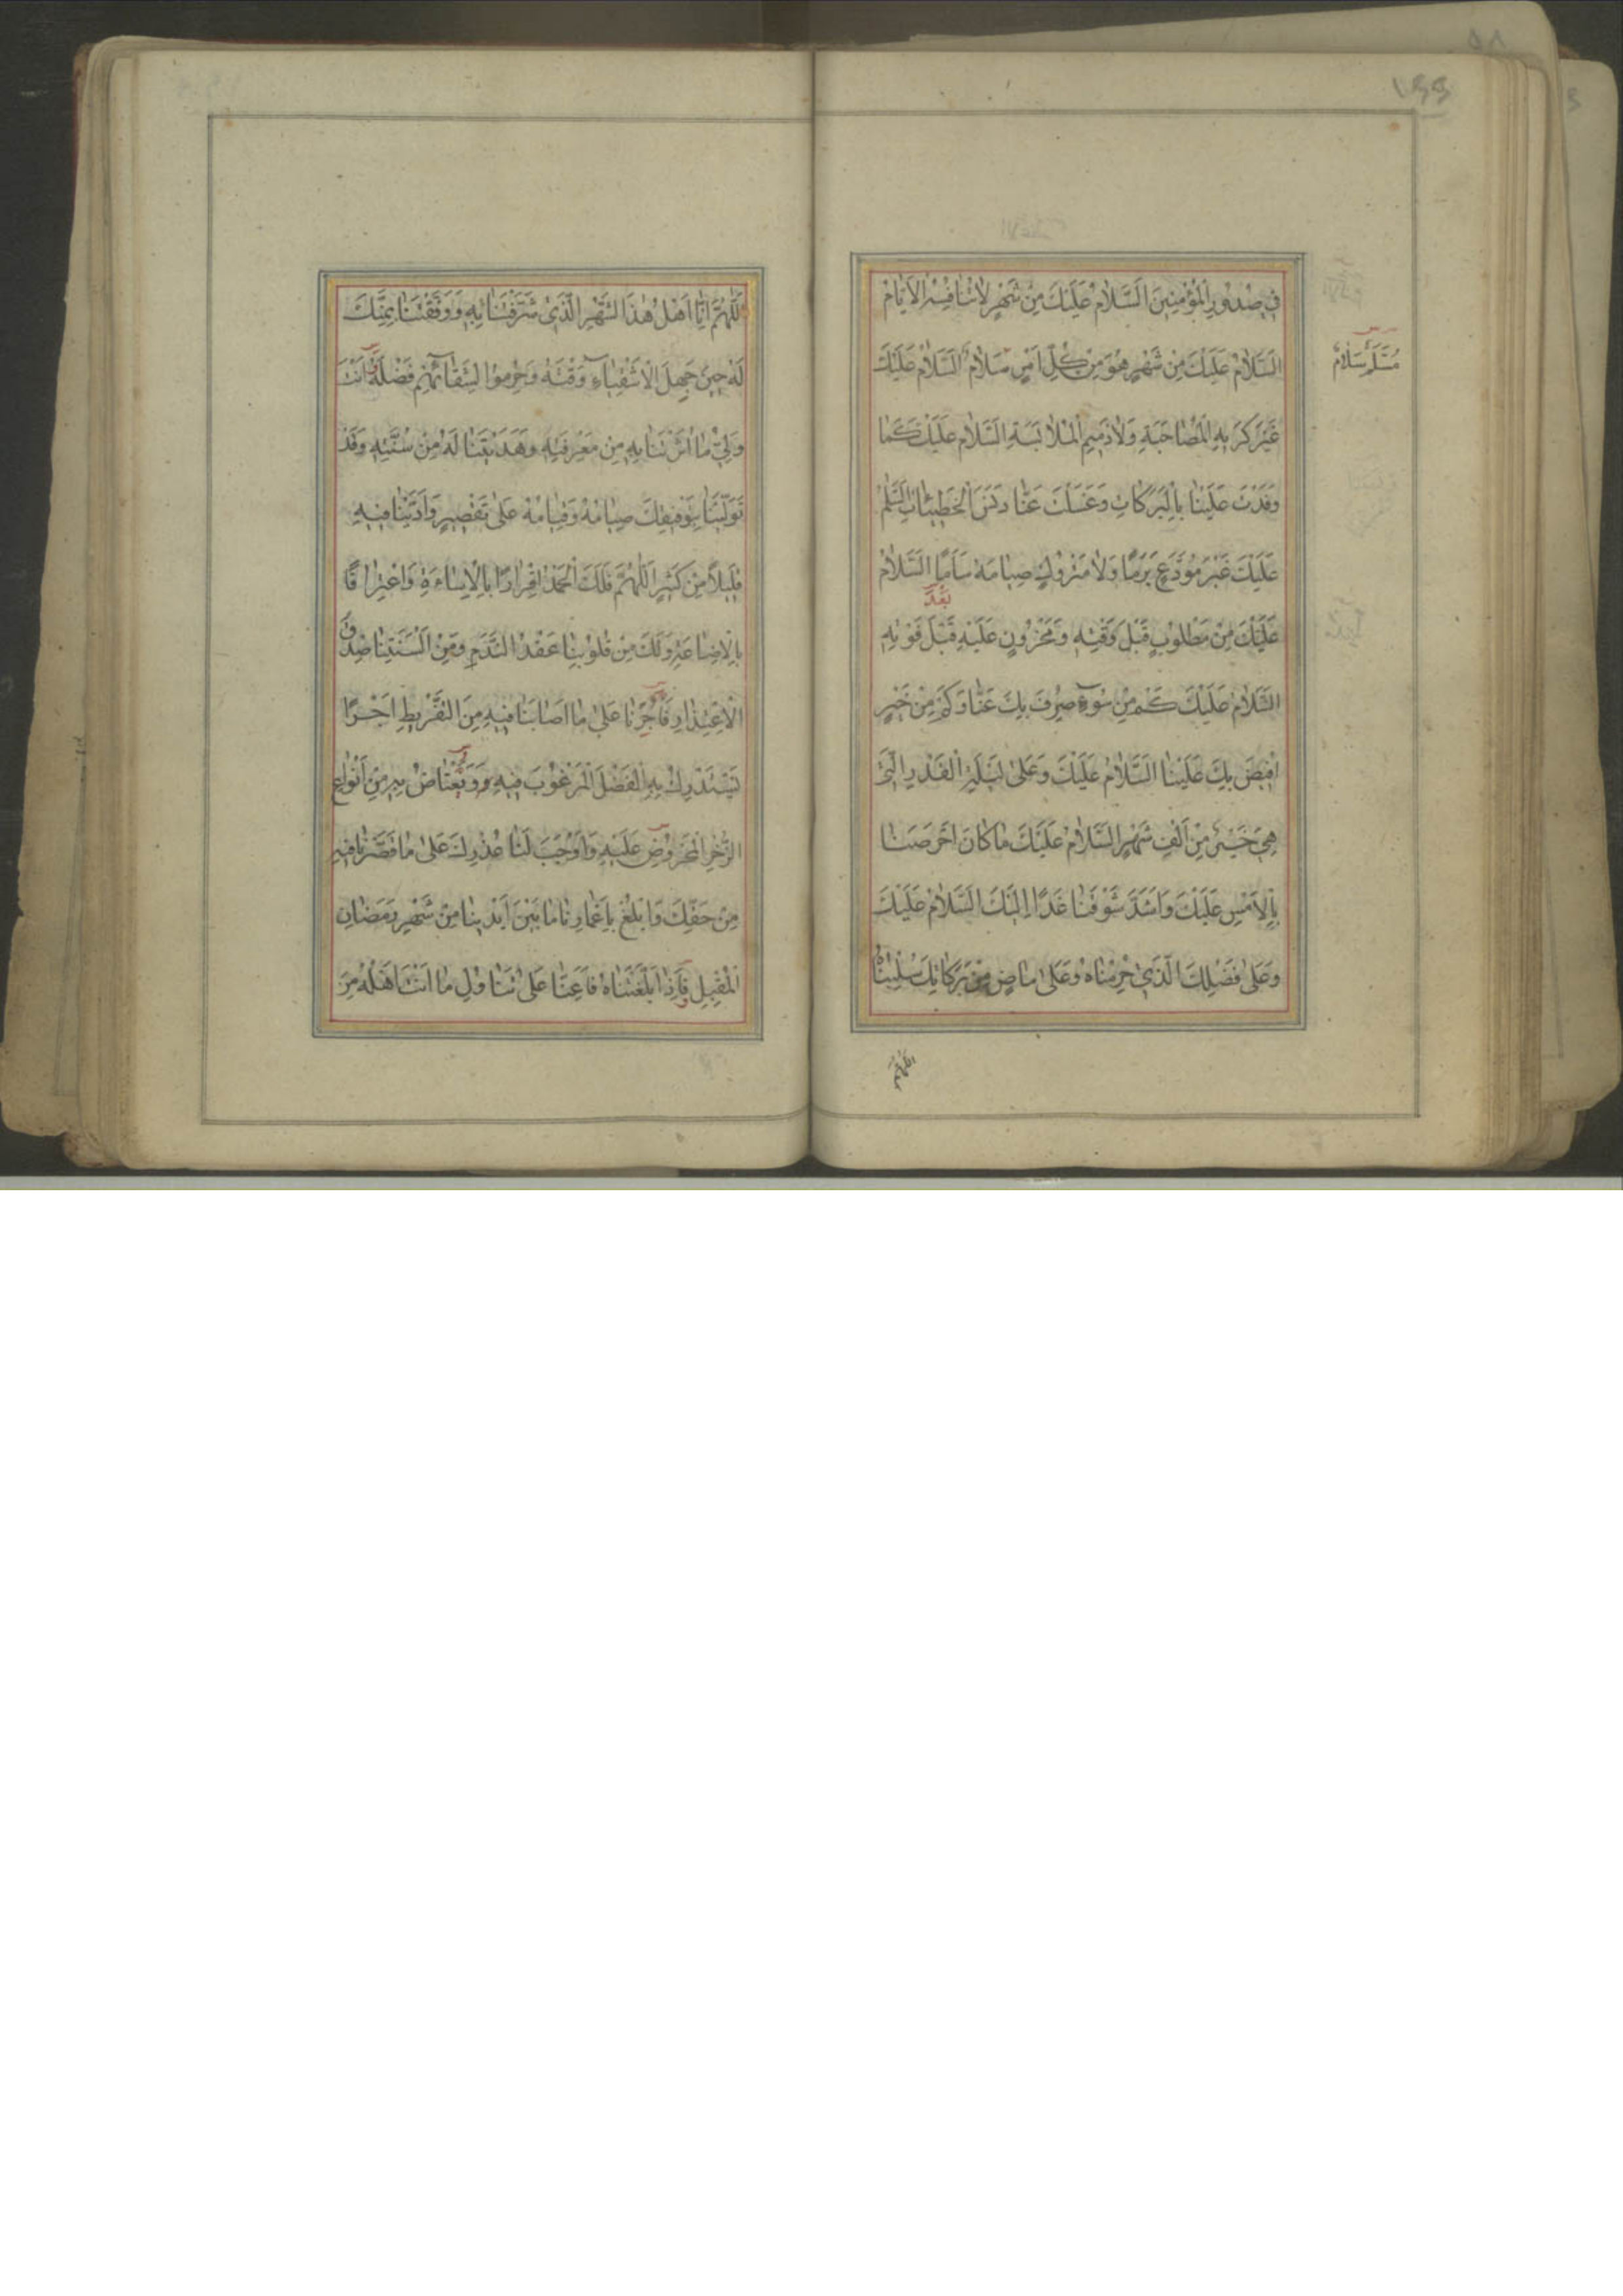 ۱۶۶
فِي صُدُورِ الْمُؤْمِنِينَ السَّلَامُ عَلَيْكَ مِنْ شَهْرٍ لَا تُنَافِسُهُ الْأَيَّامُ
السَّلَامُ عَلَيْكَ مِنْ شَهْرٍ هُوَ مِنْ كُلِّ أَمْرٍ سَلَامٌ السَّلَامُ عَلَيْكَ
غَيْرَ كَرِيهِ الْمُصَاحَبَةِ وَلَا ذَمِيمِ الْمُلَابَسَةِ السَّلَامُ عَلَيْكَ كَمَا
وَفَدْتَ عَلَيْنَا بِالْبَرَكَاتِ وَغَسَلْتَ عَنَّا دَنَسَ الْخَطِيئَاتِ السَّلَمُ
عَلَيْكَ غَيْرَ مُوَدَّعٍ بَرَمًا وَلَا مَتْرُوكٍ صِيَامُهُ سَأَمًا السَّلَامُ
بَعْدَ
عَلَيْكَ مِنْ مَطْلُوبٍ قَبْلَ وَقْتِهِ وَمَحْزُونٍ عَلَيْهِ قَبْلَ فَوْتِهِ
السَّلَامُ عَلَيْكَ كَمْ مِنْ سُوءٍ صُرِفَ بِكَ عَنَّا وَكَمْ مِنْ خَيْرٍ
أُفِيضَ بِكَ عَلَيْنَا السَّلَامُ عَلَيْكَ وَعَلَى لَيْلَةِ الْقَدْرِ الَّتِي
هِيَ خَيْرٌ مِنْ أَلْفِ شَهْرٍ السَّلَامُ عَلَيْكَ مَا كَانَ أَحْرَصَنَا
بِالْأَمْسِ عَلَيْكَ وَأَشَدَّ شَوْقَنَا غَدًا إِلَيْكَ السَّلَامُ عَلَيْكَ
وَعَلَى فَضْلِكَ الَّذِي حُرِمْنَاهُ وَعَلَى مَاضٍ مِنْ بَرَكَاتِكَ سُلِبْنَاهُ
اللَّهُمَّ
اللَّهُمَّ إِنَّا أَهْلُ هَذَا الشَّهْرِ الَّذِي شَرَّفْتَنَا بِهِ وَوَفَّقْتَنَا بِمَنِّكَ
لَهُ حِينَ جَهِلَ الْأَشْقِيَاءُ وَقْتَهُ وَحُرِمُوا لِشَقَائِهِمْ فَضْلَهُ وَأَنْتَ
وَلِيُّ مَا آثَرْتَنَا بِهِ مِنْ مَعْرِفَتِهِ وَهَدَيْتَنَا لَهُ مِنْ سُنَّتِهِ وَقَدْ
تَوَلَّيْنَا بِتَوْفِيقِكَ صِيَامَهُ وَقِيَامَهُ عَلَى تَقْصِيرٍ وَأَدَّيْنَا فِيهِ
قَلِيلًا مِنْ كَثِيرٍ اللَّهُمَّ فَلَكَ الْحَمْدُ إِقْرَارًا بِالْإِسَاءَةِ وَاعْتِرَافًا
بِالْإِضَاعَةِ وَلَكَ مِنْ قُلُوبِنَا عَقْدُ النَّدَمِ وَمِنْ أَلْسِنَتِنَا صِدْقُ
الْاِعْتِذَارِ فَأْجُرْنَا عَلَى مَا أَصَابَنَا فِيهِ مِنَ التَّفْرِيطِ أَجْرًا
نَسْتَدْرِكُ بِهِ الْفَضْلَ الْمَرْغُوبَ فِيهِ وَنَعْتَاضُ بِهِ مِنْ أَنْوَاعِ
الذُّخْرِ الْمَحْرُوصِ عَلَيْهِ وَأَوْجِبْ لَنَا عُذْرَكَ عَلَى مَا قَصَّرْنَا فِيهِ
مِنْ حَقِّكَ وَابْلُغْ بِأَعْمَارِنَا مَا بَيْنَ أَيْدِينَا مِنْ شَهْرِ رَمَضَانَ
الْمُقْبِلِ فَإِذَا بَلَّغْتَنَاهُ فَأَعِنَّا عَلَى تَنَاوُلِ مَا أَنْتَ أَهْلُهُ مِنَ